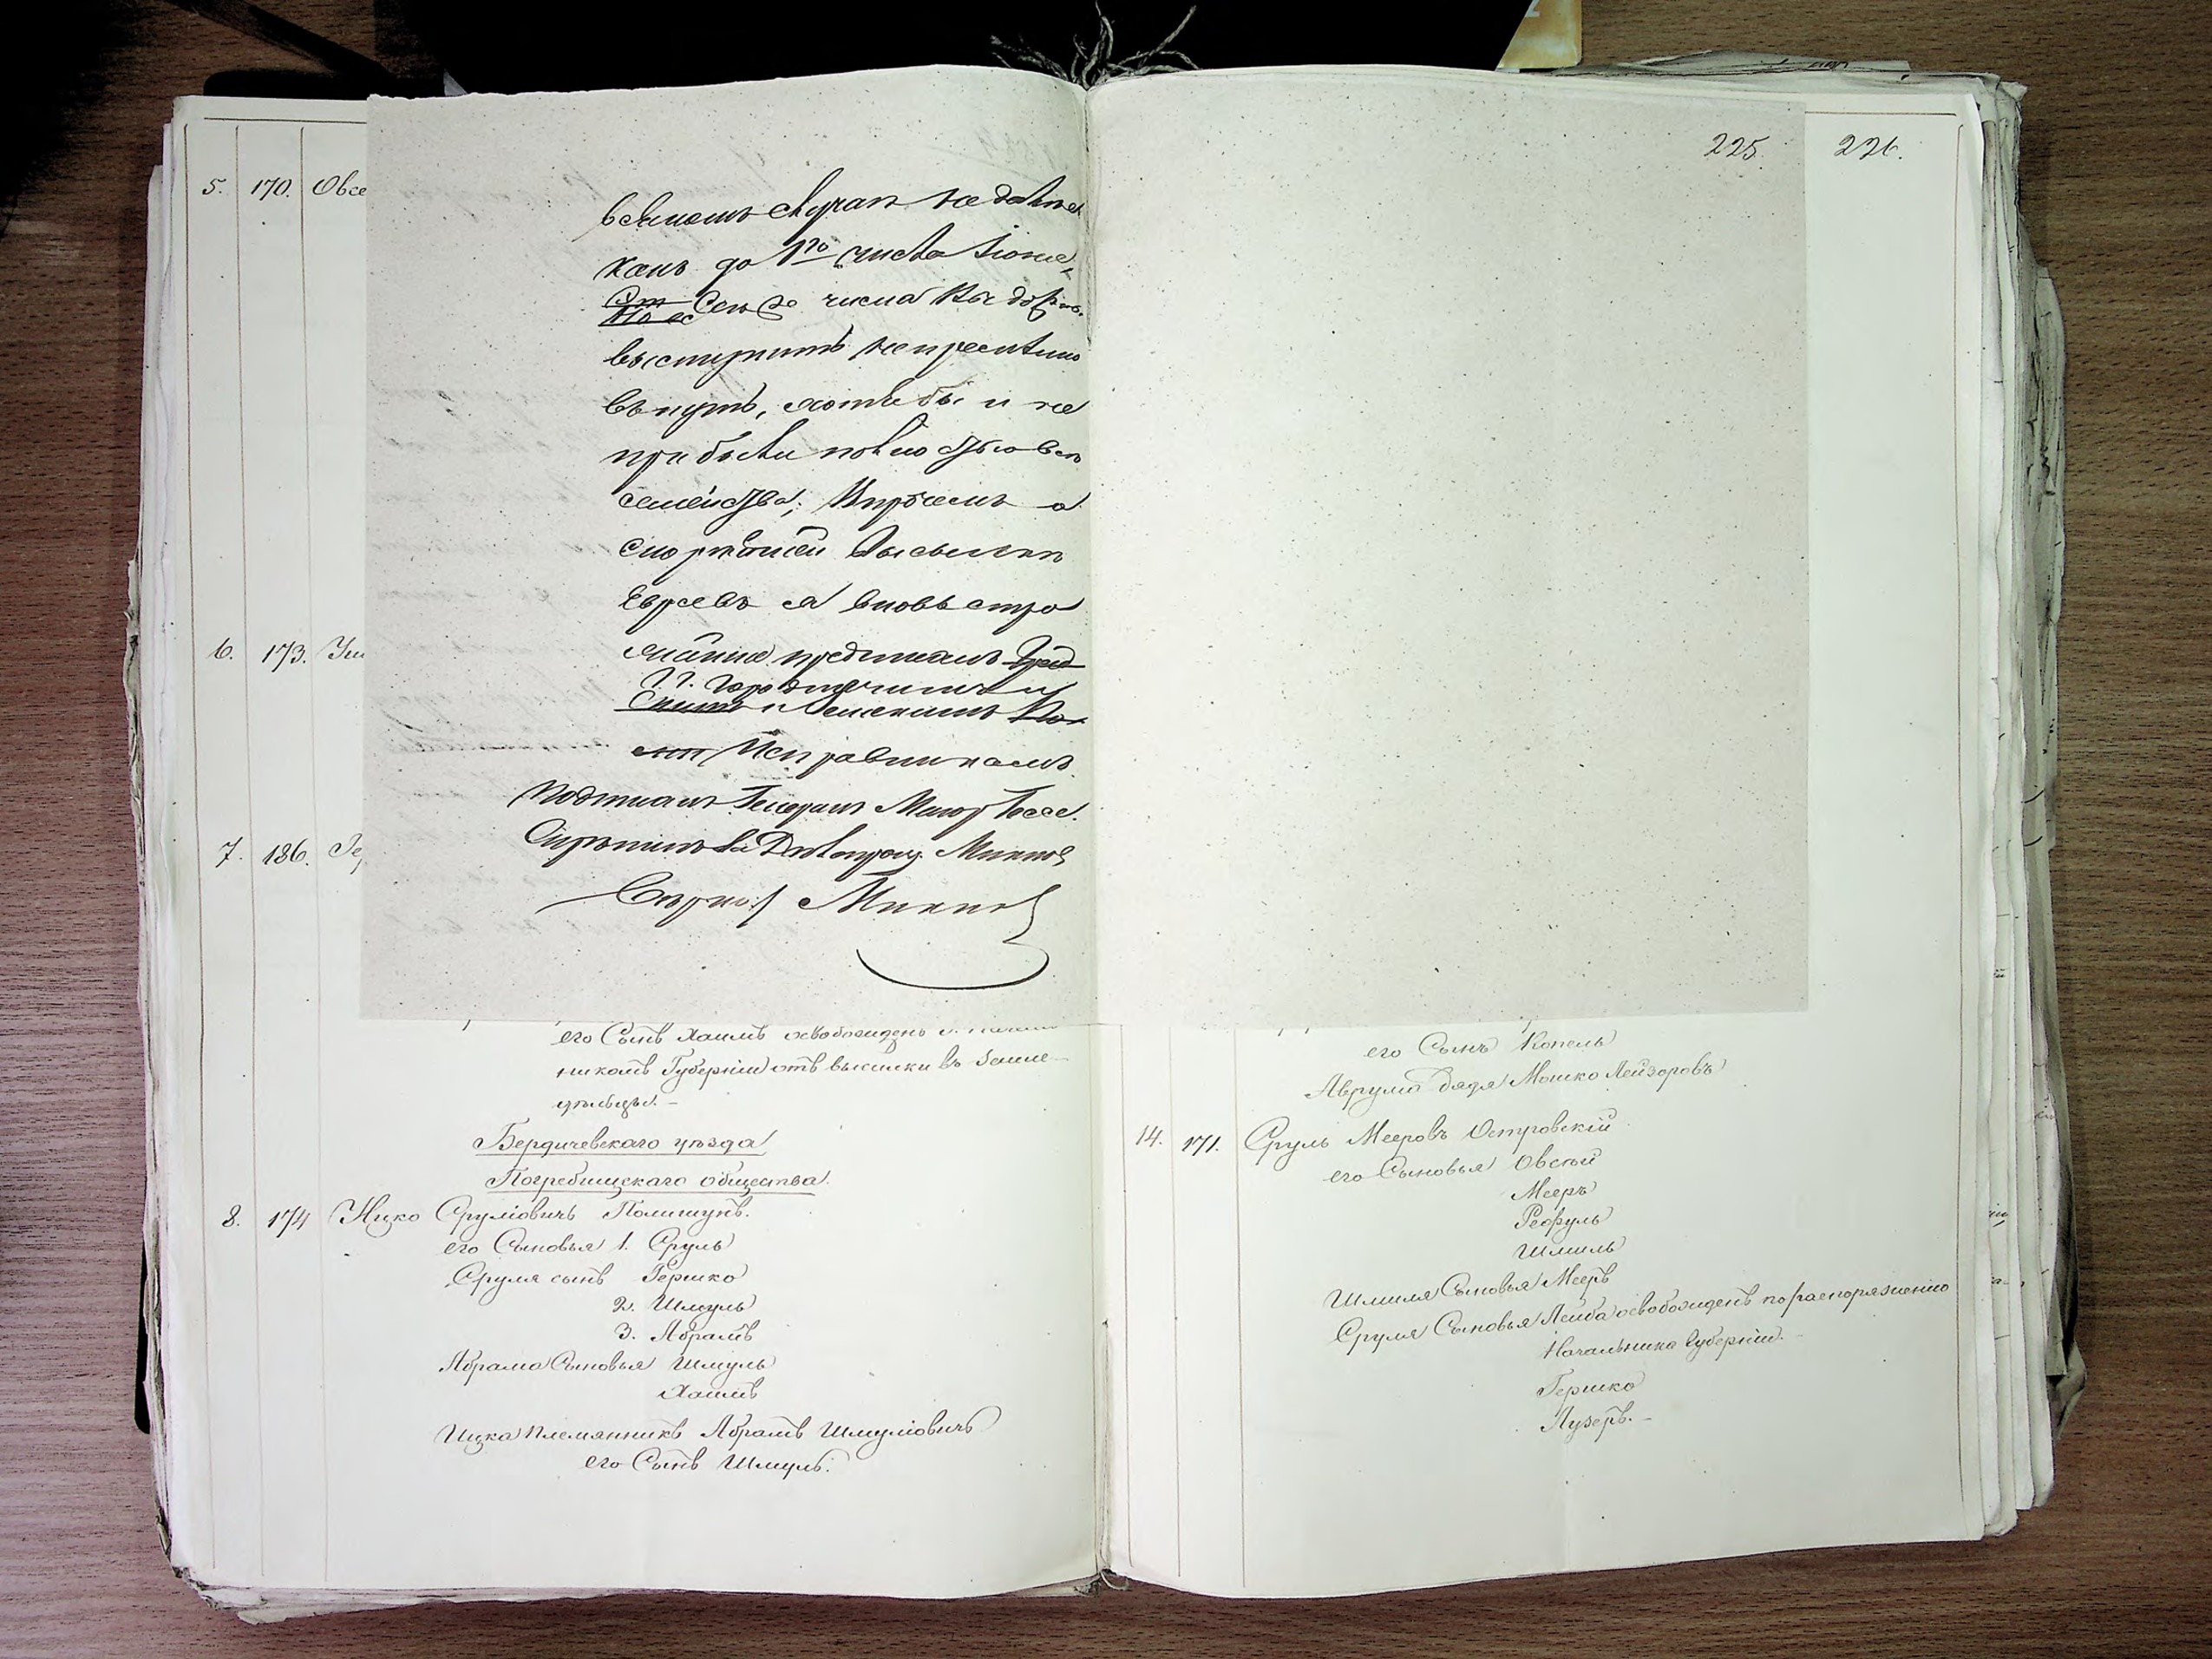 225.
226.
5. 170. Овсе
до 1го числа Іюня,
Сего числа
выступить непременно
въ путь, хотя бы и не
прибыли полностью всѣ
семейства; Впрочемъ о
скорѣйшей высылкѣ
Евреевъ я вновь строжайше
предписалъ
6. 173.
Г.г. Городничимъ и
Земскимъ
Исправникамъ.
Подписалъ Генералъ Маіоръ Гессе.
7. 186. Ге
его Сынъ Хаимъ освобожденъ
никомъ Губерніи отъ высылки въ Земле-
дѣльцы. -
Бердичевскаго уѣзда
Погребищскаго общества.
8. 174 Ицко Сруліовичъ Полищукъ.
его Сыновья 1. Сруль
Сруля сынъ Гершко
2. Шмуль
3. Абрамъ
Абрама Сыновья Шмуль
Хаимъ
Ицка племянникъ Абрамъ Шмуліовичъ
его Сынъ Шмуль.
его Сынъ Копель
Аврума дядя Мошко Лейзоровъ
14. 171. Сруль Мееровъ Островскій
его Сыновья Овсѣй
Мееръ
Рефуль
Шмиль
Шмиля Сыновья Мееръ
Сруля Сыновья Лейба освобожденъ по распоряженію
Начальника Губерніи. -
Гершко
Лузеръ. -